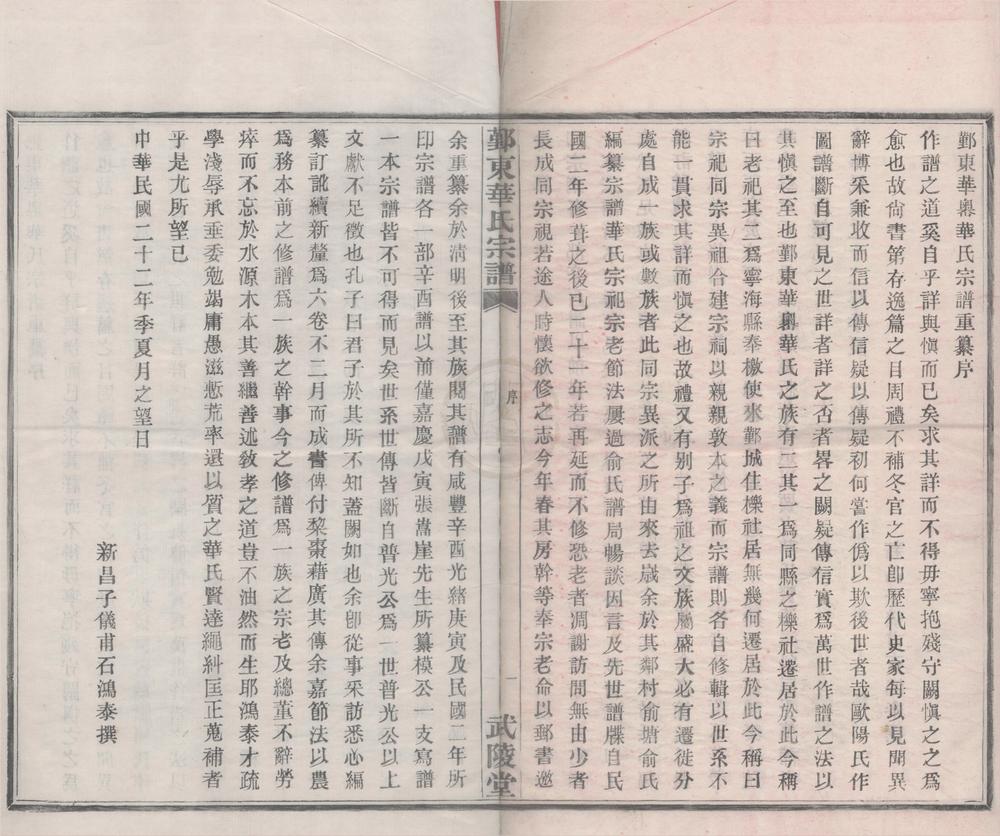 鄞東華㠘華氏宗譜重纂序
作譜之道奚自乎詳與愼而已矣求其詳而不得毋寧抱殘守闕愼之之爲
愈也故尙書第存逸篇之目周禮不補冬官之亡卽歷代史家每以見聞異
辭博釆兼收而信以傳信疑以傳疑初何嘗作僞以欺後世者哉歐陽氏作
圖譜斷自可見之世詳者詳之否者畧之闕疑傳信實爲萬世作譜之法以
其愼之至也鄞東華㠘華氏之族有二其一爲同縣之櫟社遷居於此今稱
曰老祀其二爲寧海縣奉檄使來鄞城住櫟社居無幾何遷居於此今稱曰
宗祀同宗異祖合建宗祠以親親敦本之義而宗譜則各自修輯以世系不
能一貫求其詳而愼之也故禮又有別子爲祖之文族屬盛大必有遷徙分
處自成一族或數族者此同宗異派之所由來去嵗余於其鄰村俞塘俞氏
編纂宗譜華氏宗祀宗老節法屢過俞氏譜局暢談因言及先世譜牒自民
國二年修葺之後已二十一年若再延而不修恐老者凋謝訪問無由少者
長成同宗視若途人時懷欲修之志今年春其房幹等奉宗老命以郵書邀
鄞東華氏宗譜
序
一
武陵堂
余重纂余於淸明後至其族閱其譜有咸豐辛酉光緒庚寅及民國二年所
印宗譜各一部辛酉譜以前僅嘉慶戊寅張嵩崖先生所纂模公一支寫譜
一本宗譜皆不可得而見矣世系世傳皆斷自普光公爲一世普光公以上
文獻不足徵也孔子曰君子於其所不知蓋闕如也余卽從事釆訪悉心編
纂訂訛續新釐爲六卷不三月而成書俾付棃棗藉廣其傳余嘉節法以農
爲務本前之修譜爲一族之幹事今之修譜爲一族之宗老及總董不辭勞
瘁而不忘於水源木本其善繼善述敎孝之道豈不油然而生耶鴻泰才疏
學淺辱承垂委勉竭庸愚滋慙荒率還以質之華氏賢達繩糾匡正蒐補者
乎是尤所望已
中華民國二十二年季夏月之望日
新昌子儀甫石鴻泰撰